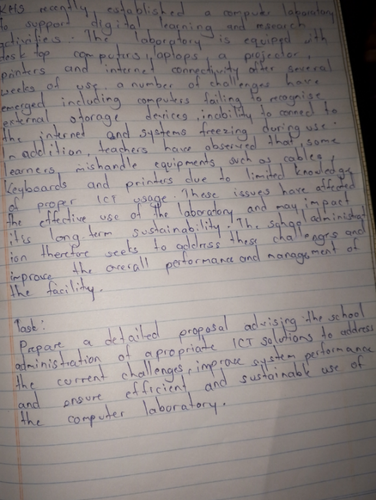 KHS recently established a computer laboratory
to support digital learning and research
activities. The laboratory is equiped with
desktop computers, laptops a projector
printers and internet connectivity after several
weeks of use, a number of challenges have
emerged including computers failing to recognise
external storage devices, inability to connect to
the internet and systems freezing during use.
In addition, teachers have observed that some
learners mishandle equipments such as cables,
keyboards and printers due to limited knowledge
of proper ICT usage. These issues have affected
the effective use of the laboratory and may impact
it's long term sustainability. The administrat
ion therefore seeks to address these challenges and
improve the overall performance and management of
the facility.
Task:
Prepare a detailed proposal advising the school
administration of appropriate ICT solutions to address
the current challenges, improve system performance
and ensure efficient and sustainable use of
the computer laboratory.